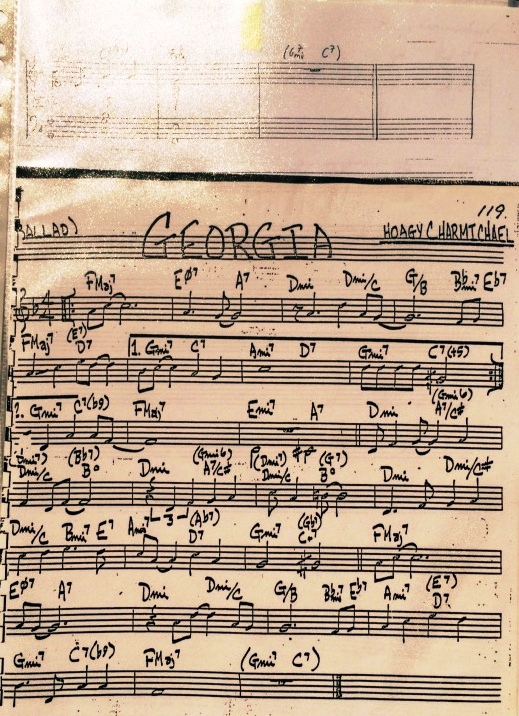 (Gmi7 C7)
119.
BALLAD) GEORGIA HOAGY CHARMICHAEL
FMaj7 Eø7 A7 Dmi Dmi/C G/B Bbmi7 Eb7
FMaj7 (E7) D7 1. Gmi7 C7 Ami7 D7 Gmi7 C7(+5)
2. Gmi7 C7(b9) FMaj7 Emi7 A7 Dmi (Gmi6) A7/C#
(Dmi7) Dmi/C (Bb7) B° Dmi (Gmi6) A7/C# (Dmi7) Dmi/C (G7) B° Dmi Dmi/C#
Dmi/C Bmi7 E7 Ami7 3 (Ab7) D7 Gmi7 (Gb7) FMaj7
Eø7 A7 Dmi Dmi/C G/B Bbmi7 Eb7 Ami7 (E7) D7
Gmi7 C7(b9) FMaj7 (Gmi7 C7)